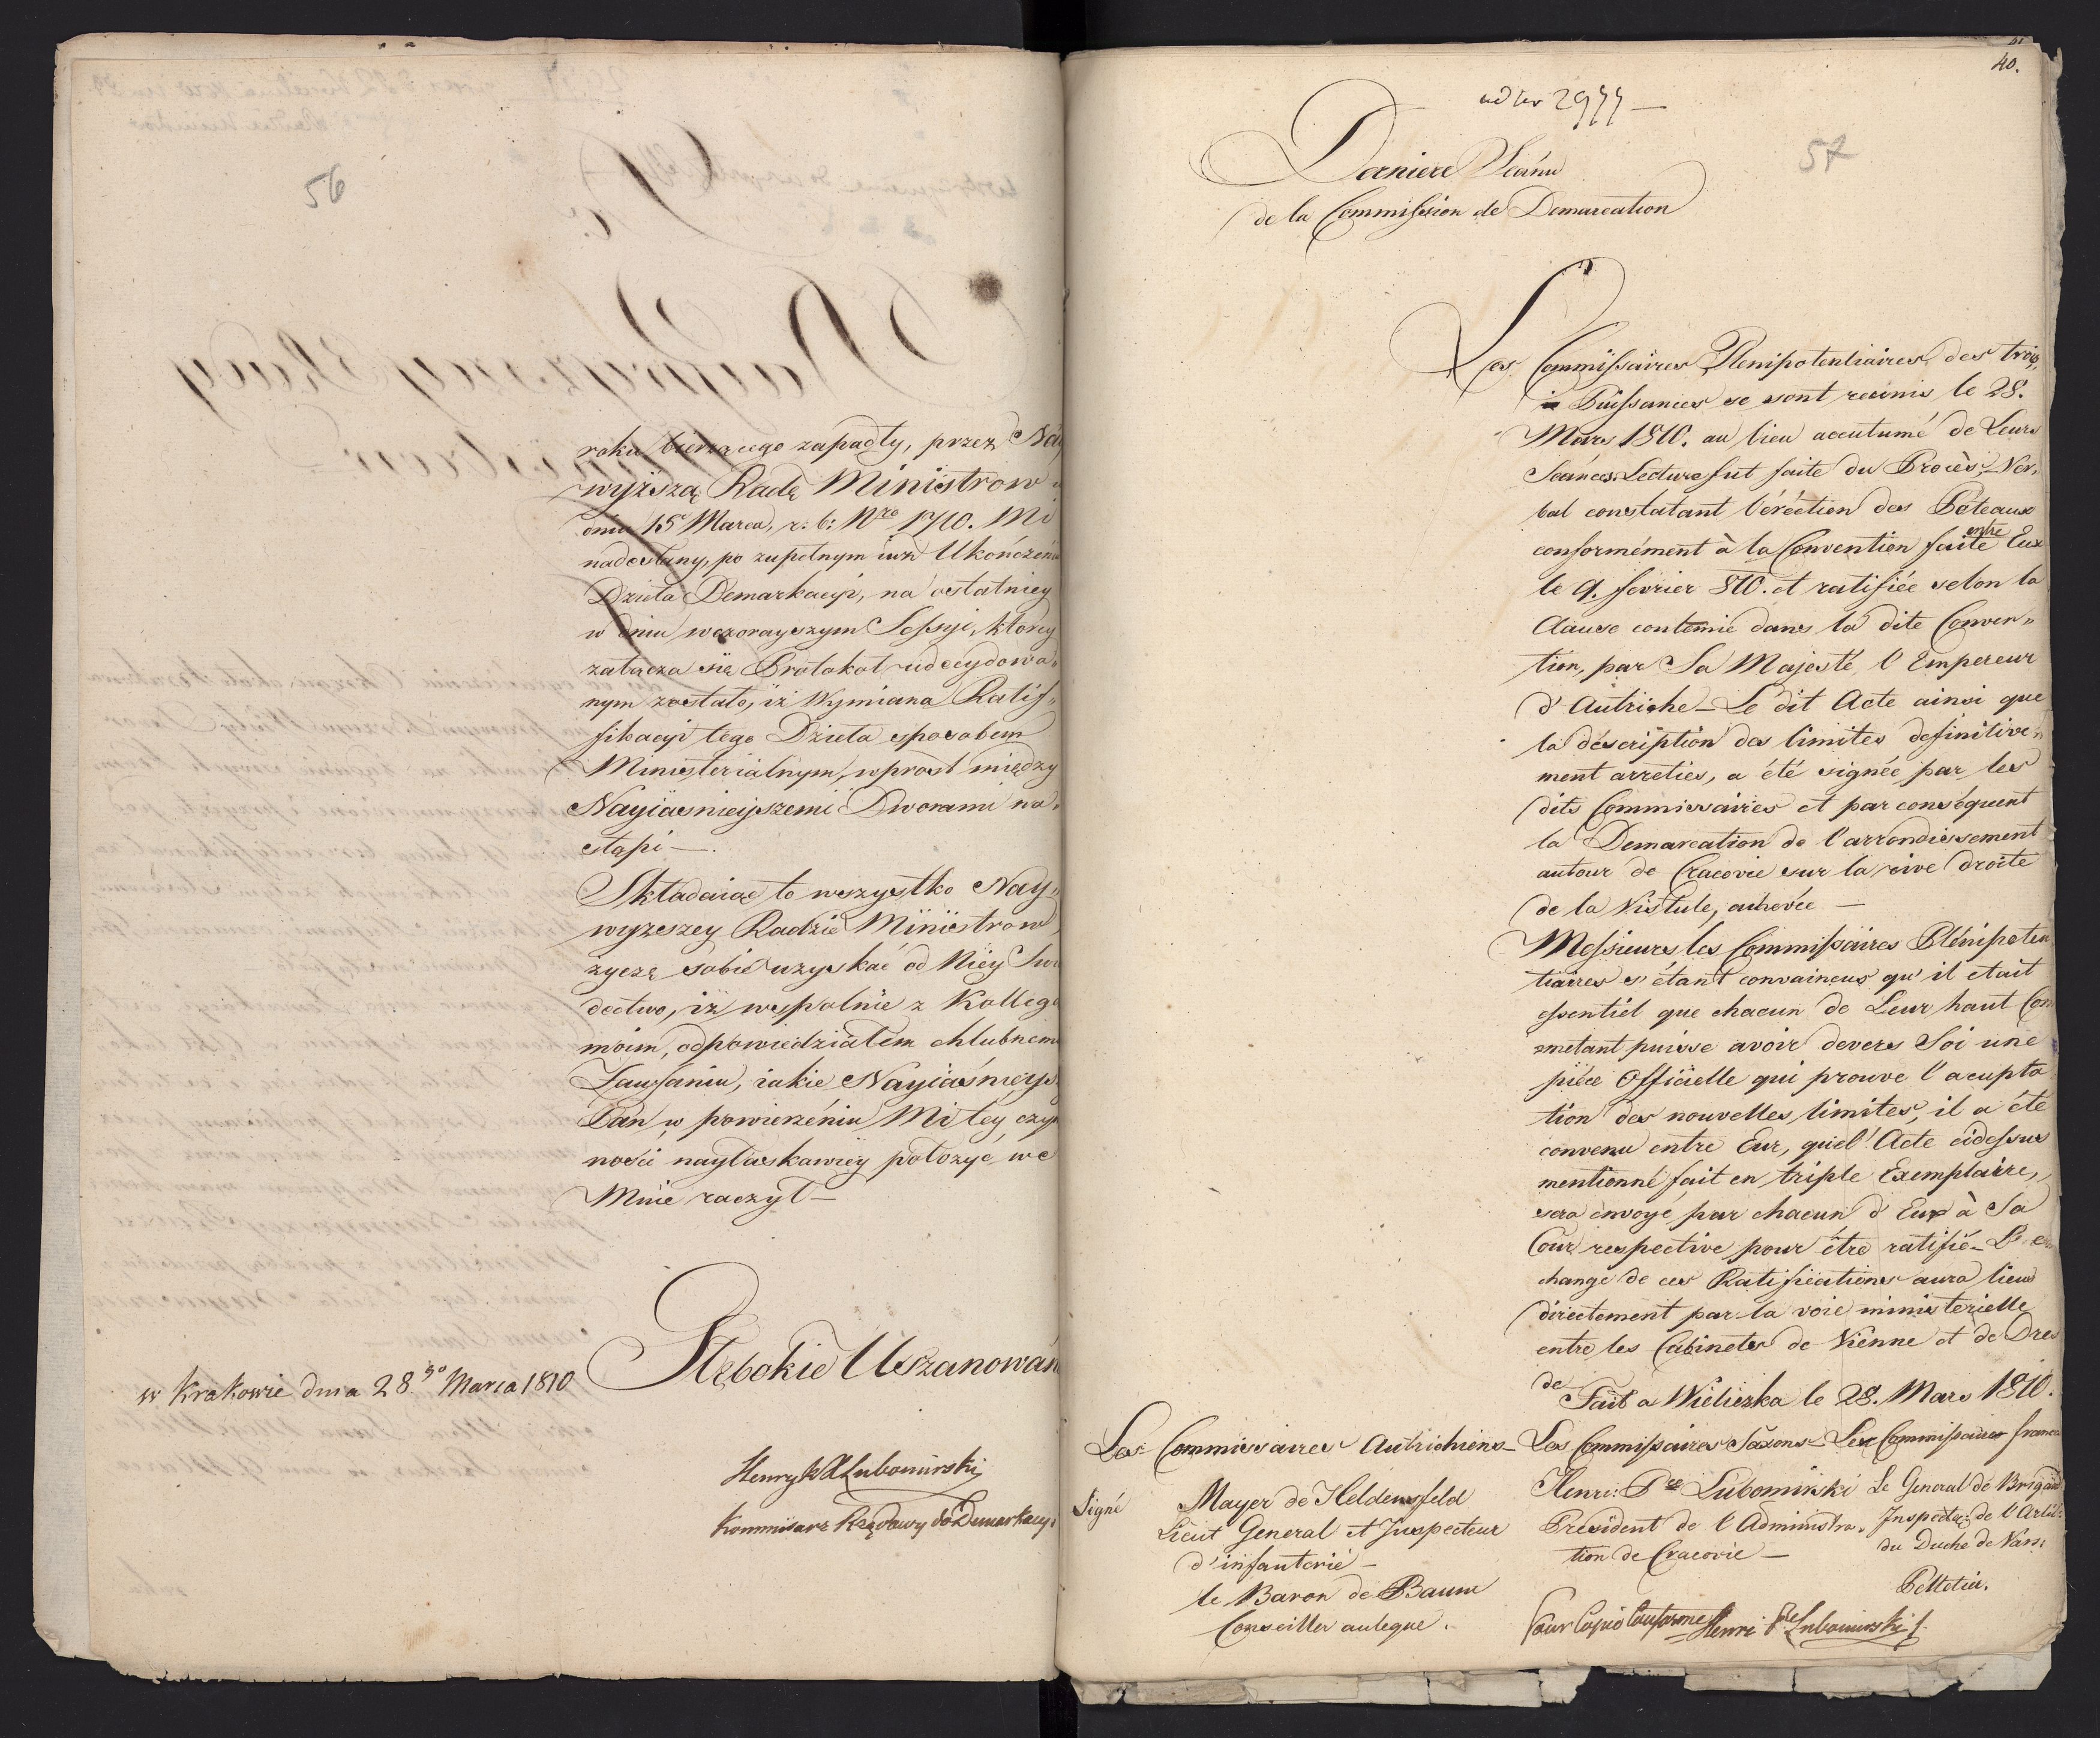 56
roku bierzącego zapadły, przez Nay
wyższą Radę Ministrow
dnia 15 Marca, r: b: Nro 1710. Mi
nadesłany, po zupełnym iuż Ukończeniu
Dzieła Demarkacyi, na ostatniey
w dniu wczorayszym Sessyi, ktorey
załącza się Protokoł udecydowa„
nym zostało, iż Wymiana Ratif„
fikacyi tego Dzieła sposobem
Ministerialnym, wprost między
Nayiaśnieyszemi Dworami na„
stąpi —.
Składaiąc to wszystko Nay„
wyzszey Radzie Ministrow
zyczę sobie uzyskać od Niey Swia
dectwo, iż wspolnie z Kollegą
moim, odpowiedziałem chlubnemu
Zaufaniu, iakie Nayiaśnieysz
Pan w powierzeniu Mi tey czyn
ności nayłaskawiey połozyć we
Mnie raczył —
Głębokie Uszanowan
w Krakowie dnia 28go Marca 1810
Henryk X Lubomirski
Kommisarz Rządowy do Demarkacyi
40.
ad Nr 2977 —
57
Derniere Séánce
de la Commission de Demarcation
Les Commissaires Plenipotentiaires des trois
Puissances se sont reunis le 28.
Mars 1810. au lieu accutumé de Leurs
Seánces. Lecture fut faite du Procès-Ver„
bal constatant l'éréction des Poteaux
conformément à la Convention faite entre Eux
le 9. fevrier 810. et ratifiée selon la
Clause contenue dans la dite Conven„
tion, par Sa Majesté l'Empereur
d'Autriche — Le dit Acte ainsi que
la déscription des limites definitive„
ment arretées, a été signée par les
dits Commissaires et par conséquent
la Demarcation de l'arrondissement
autour de Cracovie sur la rive droite
de la Vistule, achevée —
Messieurs les Commissaires Plénipoten
tiaires s'étant convaincus qu'il etait
essentiél que chacun de Leur haut Com
metant puisse avoir devers Soi une
piéce Officielle qui prouve l'acepta
tion des nouvelles limites, il a été
convenu entre Eux, que l'Acte cidessus
mentionné fait en triple Exemplaire,
sera envoyé par chacun d'Eux à Sa
Cour respective pour être ratifié — L'e
change de ces Ratifications aura lieu
directement par la voie ministerielle
entre les Cabinets de Viénne et de Dres
de
Fait a Wieliczka le 28. Mars 1810.
Les Commissaires Autrichiens — Les Commissaires Saxons — Les Commissaires francai
Signé Mayer de Heldensfeld
Lieut General et Inspecteur
d'infanterie —
le Baron de Baum
Conseiller aulique.
Henri: Pce Lubomirski
President de l'Administra„
tion de Cracovie —
Le General de Brigade
Inspecteur de l'Artil:
du Duché de Vars:
Pelletier.
Pour Copie Conforme Henri Pce Lubomirski